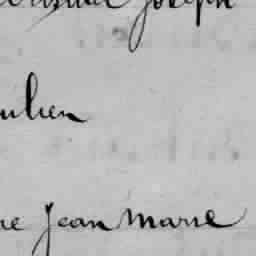 Joseph
ulien
Jean Marie